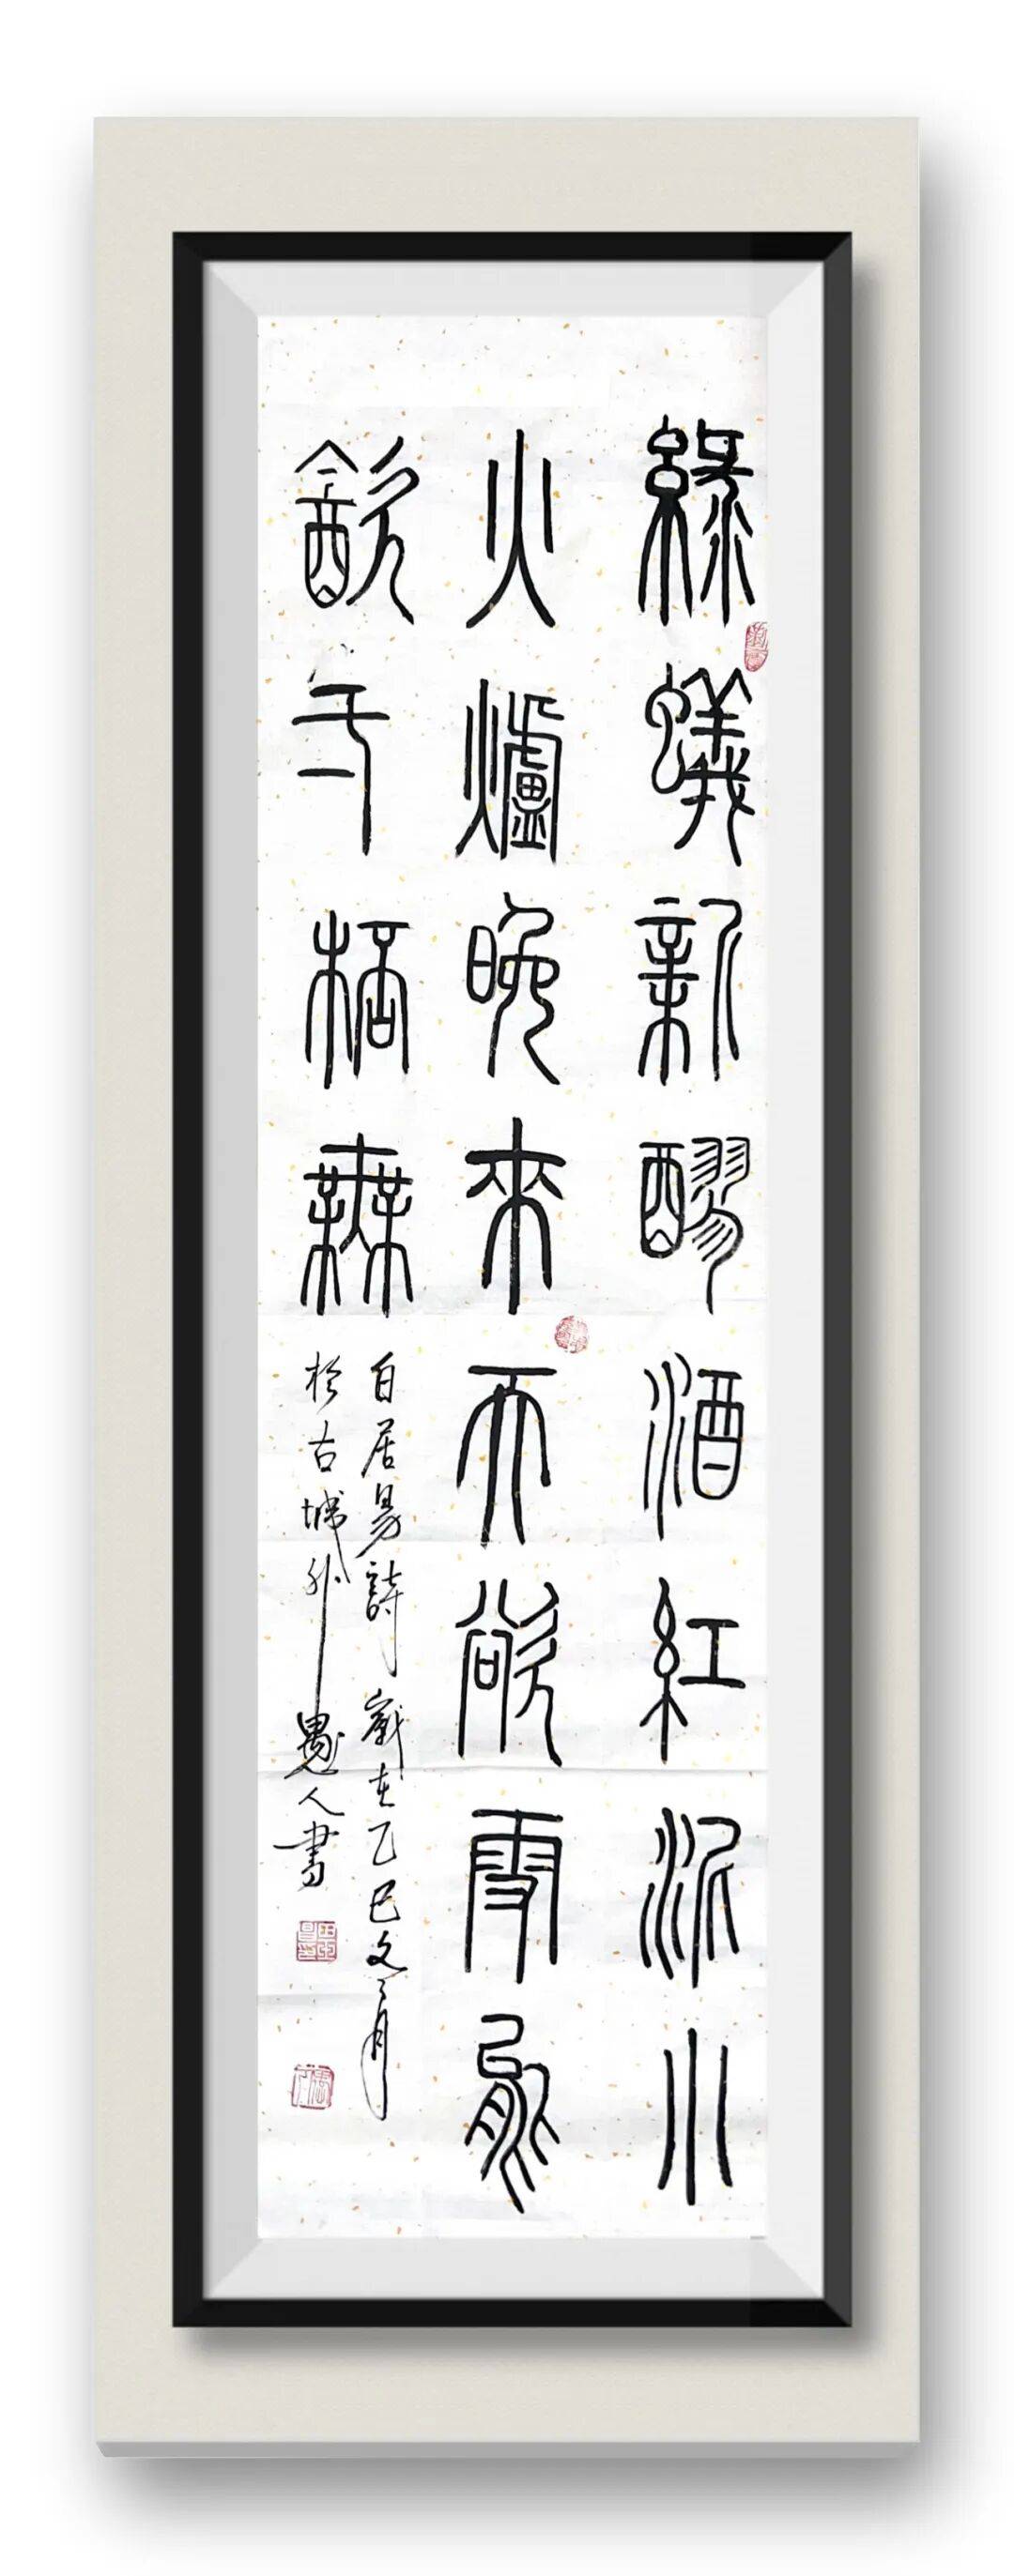 綠蟻新醪酒紅泥小
火爐晚來天欲雪能
飲弌桮無
白居易詩歲在乙巳冬月
於古城外愚人書